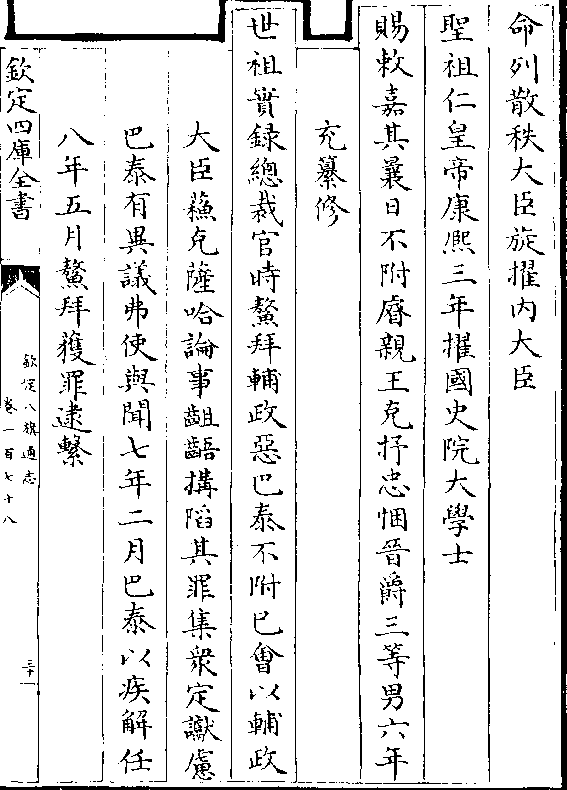 命列散秩大臣旋擢内大臣
聖祖仁皇帝康熙三年擢國史院大學士
賜敕嘉其曩日不附睿親王克抒忠悃晉爵三等男六年
充纂修
世祖實録總裁官時鰲拜輔政惡巴泰不附已會以輔政
大臣蘓克薩哈論事齟齬搆陷其罪集衆定讞慮
巴泰有異議弗使與聞七年二月巴泰以疾解任
八年五月鰲拜獲罪逮繫
欽定四庫全書
欽定八旗通志
卷一百七十八